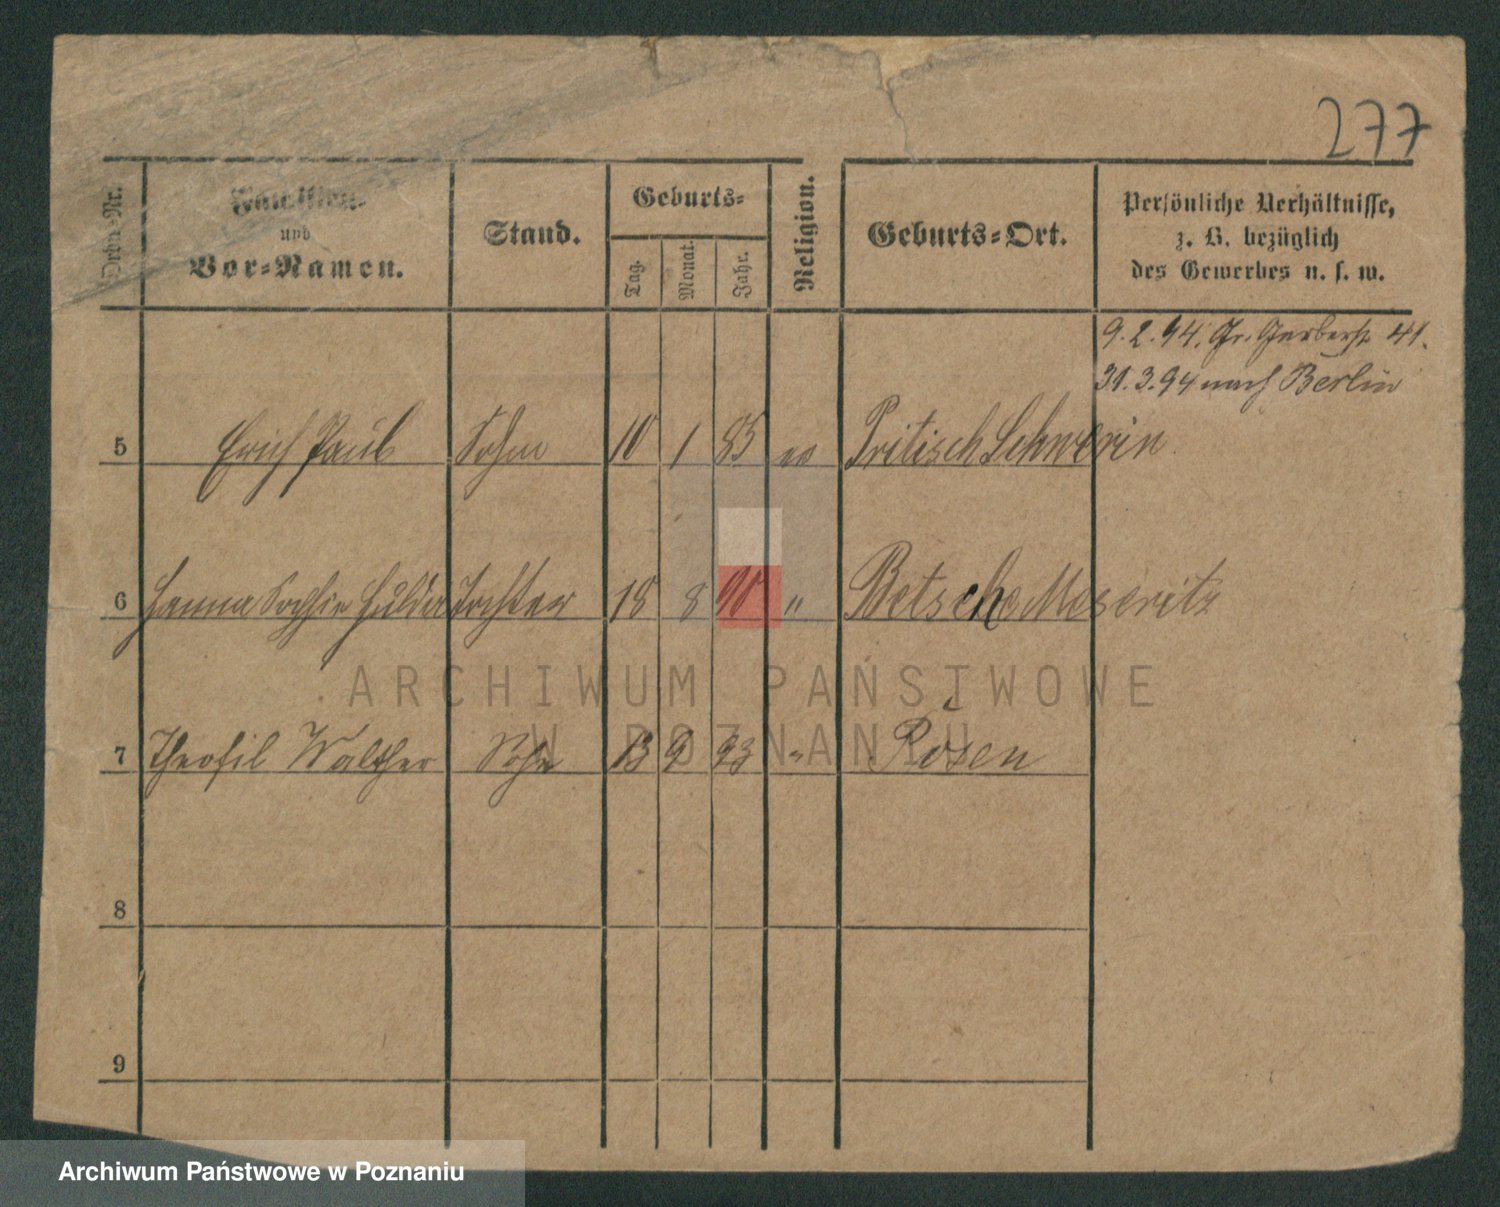 277
Ordn.-Nr.
Familien-
und
Vor-Namen.
Stand.
Geburts-
Tag.
Monat.
Jahr.
Religion.
Geburts-Ort.
Persönliche Verhältnisse,
z. B. bezüglich
des Gewerbes u. s. w.
9.2.94. Gr. Gerberstr 41.
31.3.94 nach Berlin
5 Erich Paul Sohn 10 1 85 ev Pritisch Schwerin
6 Hanna Sophie Hulda Tochter 18 8 90 " Betsche Meseritz
7 Theofil Walther Sohn 13 9 93 " Posen
8
9
ARCHIWUM PAŃSTWOWE
W POZNANIU
Archiwum Państwowe w Poznaniu